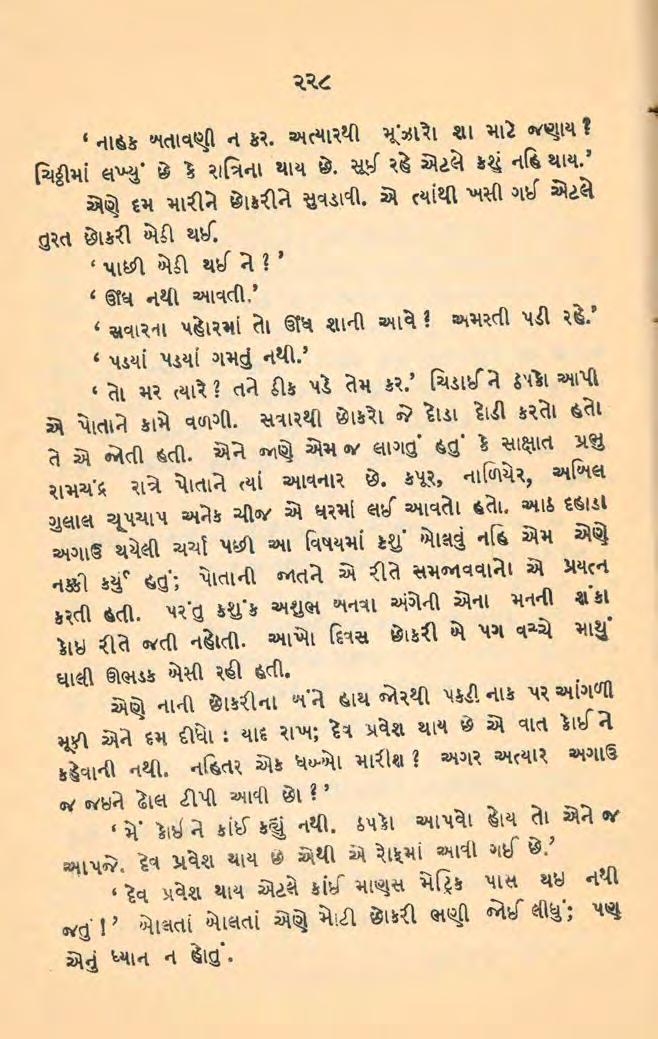 ૨૨૮
‘ નાહક બતાવણી ન કર. અત્યારથી મૂંઝારો શા માટે જણાય ?
ચિઠ્ઠીમાં લખ્યું છે કે રાત્રિના થાય છે. સૂઈ રહે એટલે કશું નહિ થાય.’
એણે દમ મારીને છોકરીને સુવડાવી. એ ત્યાંથી ખસી ગઈ એટલે
તુરત છોકરી બેઠી થઈ.
‘ પાછી બેઠી થઈ ને ? ’
‘ ઊંઘ નથી આવતી.’
‘ સવારના પહોરમાં તો ઊંઘ શાની આવે ? અમસ્તી પડી રહે.’
‘ પડ્યાં પડ્યાં ગમતું નથી.’
‘ તો મર ત્યારે ? તને ઠીક પડે તેમ કર.’ ચિડાઈને ઠપકો આપી
એ પોતાને કામે વળગી. સવારથી છોકરો જે દોડા દોડી કરતો હતો
તે એ જોતી હતી. એને જાણે એમ જ લાગતું હતું કે સાક્ષાત પ્રભુ
રામચંદ્ર રાત્રે પોતાને ત્યાં આવનાર છે. કપૂર, નાળિયેર, અબિલ
ગુલાલ ચૂપચાપ અનેક ચીજ એ ઘરમાં લઈ આવતો હતો. આઠ દહાડા
અગાઉ થયેલી ચર્ચા પછી આ વિષયમાં કશું બોલવું નહિ એમ એણે
નક્કી કર્યું હતું; પોતાની જાતને એ રીતે સમજાવવાનો એ પ્રયત્ન
કરતી હતી. પરંતુ કશુંક અશુભ બનવા અંગેની એના મનની શંકા
કોઇ રીતે જતી નહોતી. આખો દિવસ છોકરી બે પગ વચ્ચે માથું
ઘાલી ઊભડક બેસી રહી હતી.
એણે નાની છોકરીના બંને હાથ જોરથી પકડી નાક પર આંગળી
મૂકી એને દમ દીધો : યાદ રાખ; દેવ પ્રવેશ થાય છે એ વાત કોઈને
કહેવાની નથી. નહિતર એક ધબ્બો મારીશ ? અગર અત્યાર અગાઉ
જ જઇને ઢોલ ટીપી આવી છો ? ’
‘ મેં કોઇને કાંઈ કહ્યું નથી. ઠપકો આપવો હોય તો એને જ
આપજે. દેવ પ્રવેશ થાય છે એથી એ રોફમાં આવી ગઈ છે.’
‘ દેવ પ્રવેશ થાય એટલે કાંઈ માણસ મેટ્રિક પાસ થઇ નથી
જતું ! ’ બોલતાં બોલતાં એણે મોટી છોકરી ભણી જોઈ લીધું; પણ
એનું ધ્યાન ન હોતું.